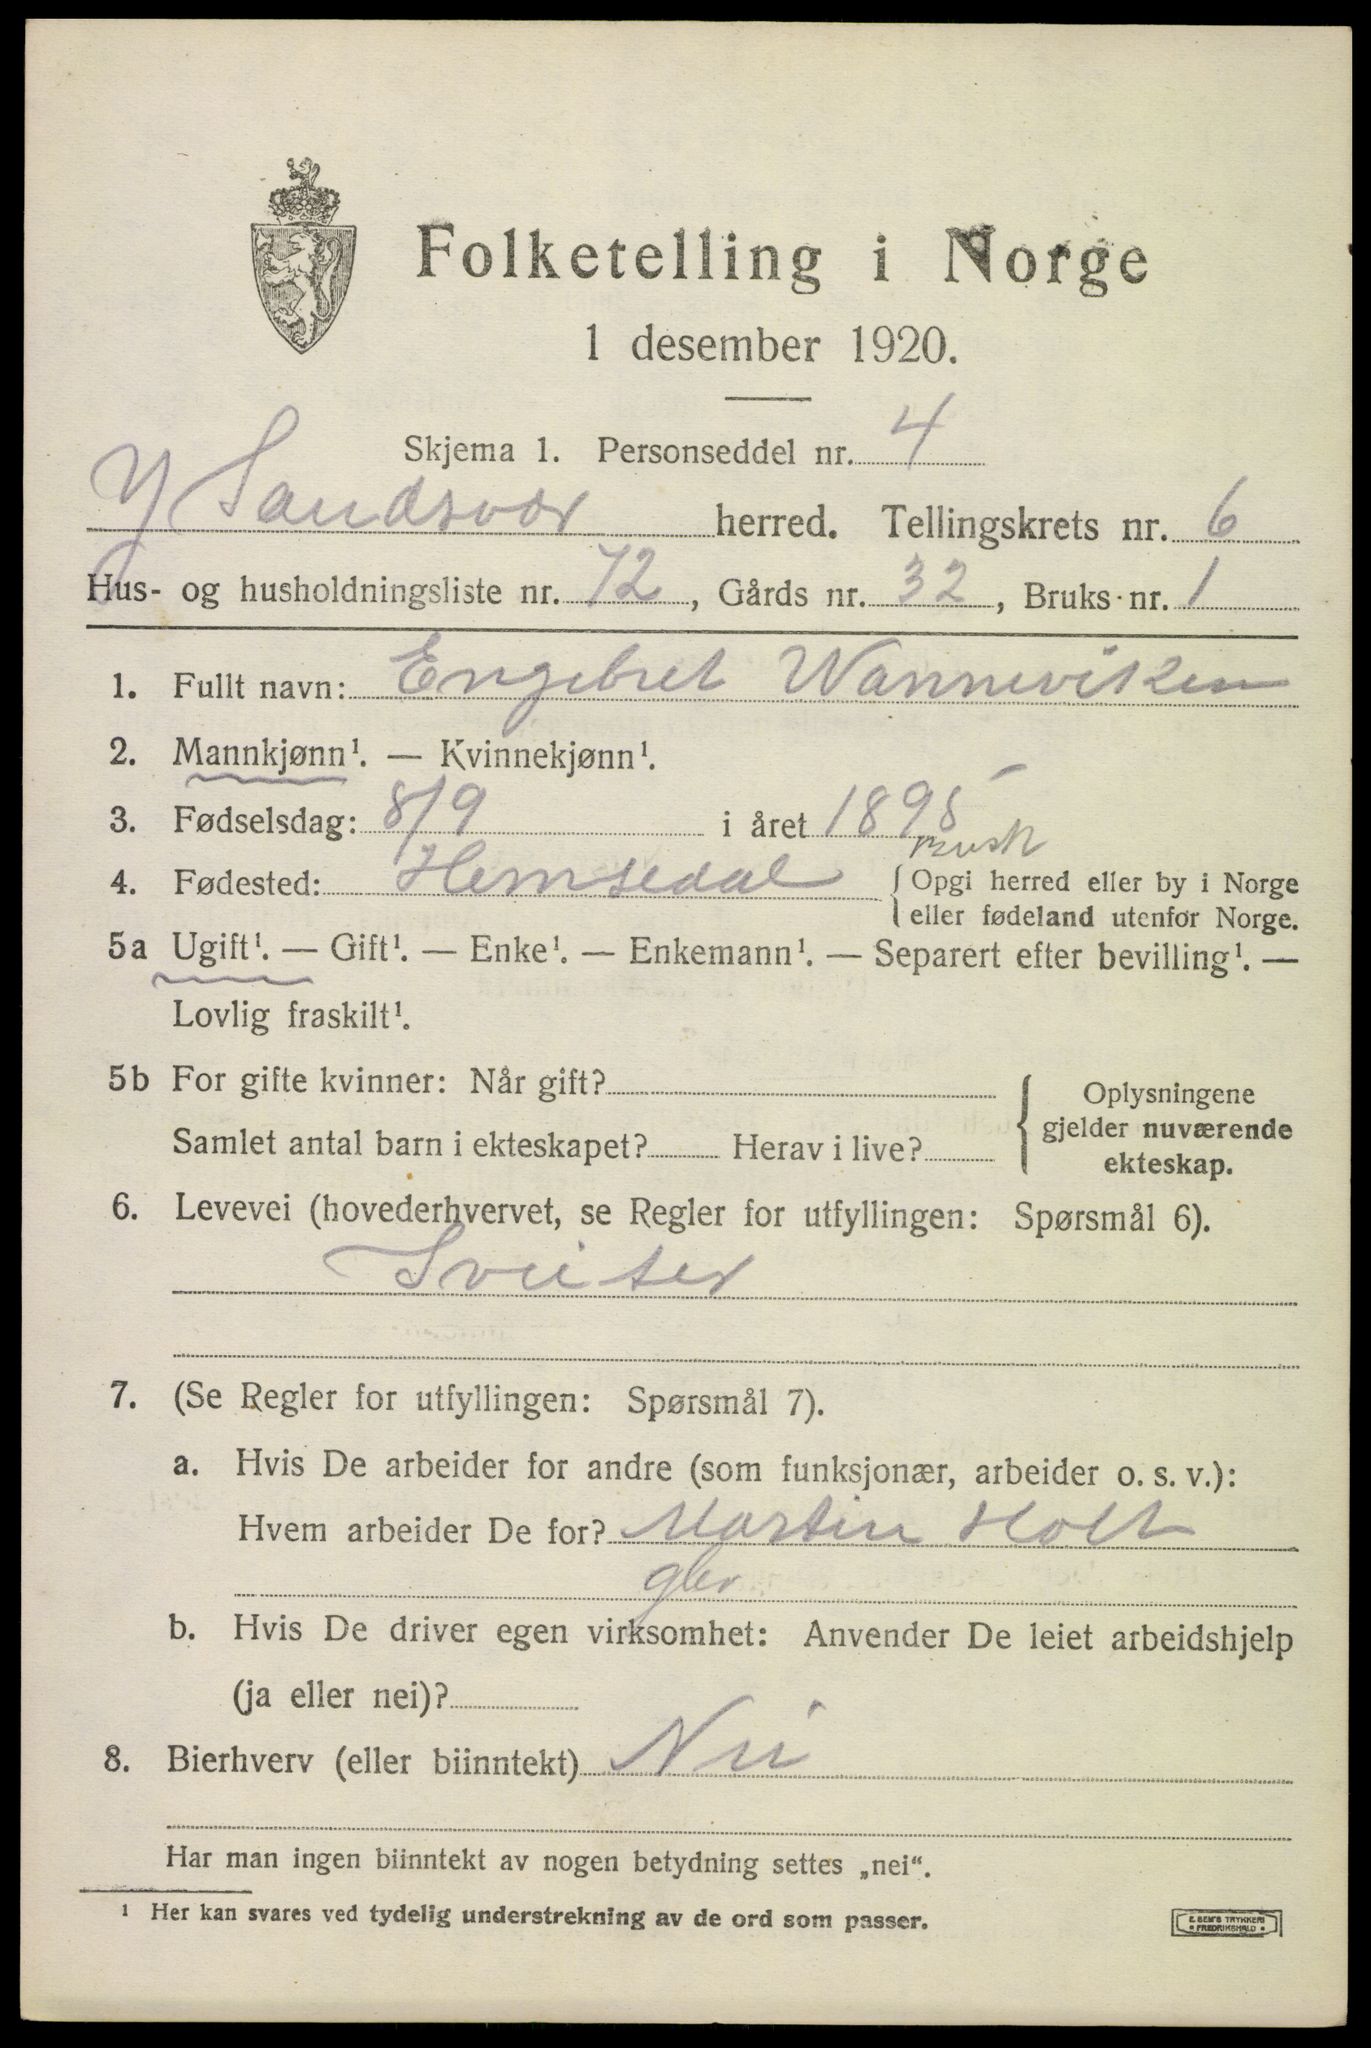 Folketelling i Norge
1 desember 1920.
Skjema 1. Personseddel nr. 4
Y Sandsvær herred. Tellingskrets nr. 6
Hus- og husholdningsliste nr. 72, Gårds nr. 32, Bruks nr. 1
1. Fullt navn: Engebret Wanneviken
2. Mannkjønn¹. — Kvinnekjønn¹.
3. Fødselsdag: 8/9 i året 1895
Busk
4. Fødested: Hemsedal { Opgi herred eller by i Norge
eller fødeland utenfor Norge.
5a Ugift¹. — Gift¹. — Enke¹. — Enkemann¹. — Separert efter bevilling¹. —
Lovlig fraskilt¹.
5b For gifte kvinner: Når gift?
Samlet antal barn i ekteskapet? Herav i live?
{ Oplysningene
gjelder nuværende
ekteskap.
6. Levevei (hovederhvervet, se Regler for utfyllingen: Spørsmål 6).
Sveiser
7. (Se Regler for utfyllingen: Spørsmål 7).
a. Hvis De arbeider for andre (som funksjonær, arbeider o. s. v.):
Hvem arbeider De for? Martin Holt
gbr
b. Hvis De driver egen virksomhet: Anvender De leiet arbeidshjelp
(ja eller nei)?
8. Bierhverv (eller biinntekt) Nei
Har man ingen biinntekt av nogen betydning settes „nei“.
¹ Her kan svares ved tydelig understrekning av de ord som passer.
E. SEM'S TRYKKERI
* FREDRIKSHALD *